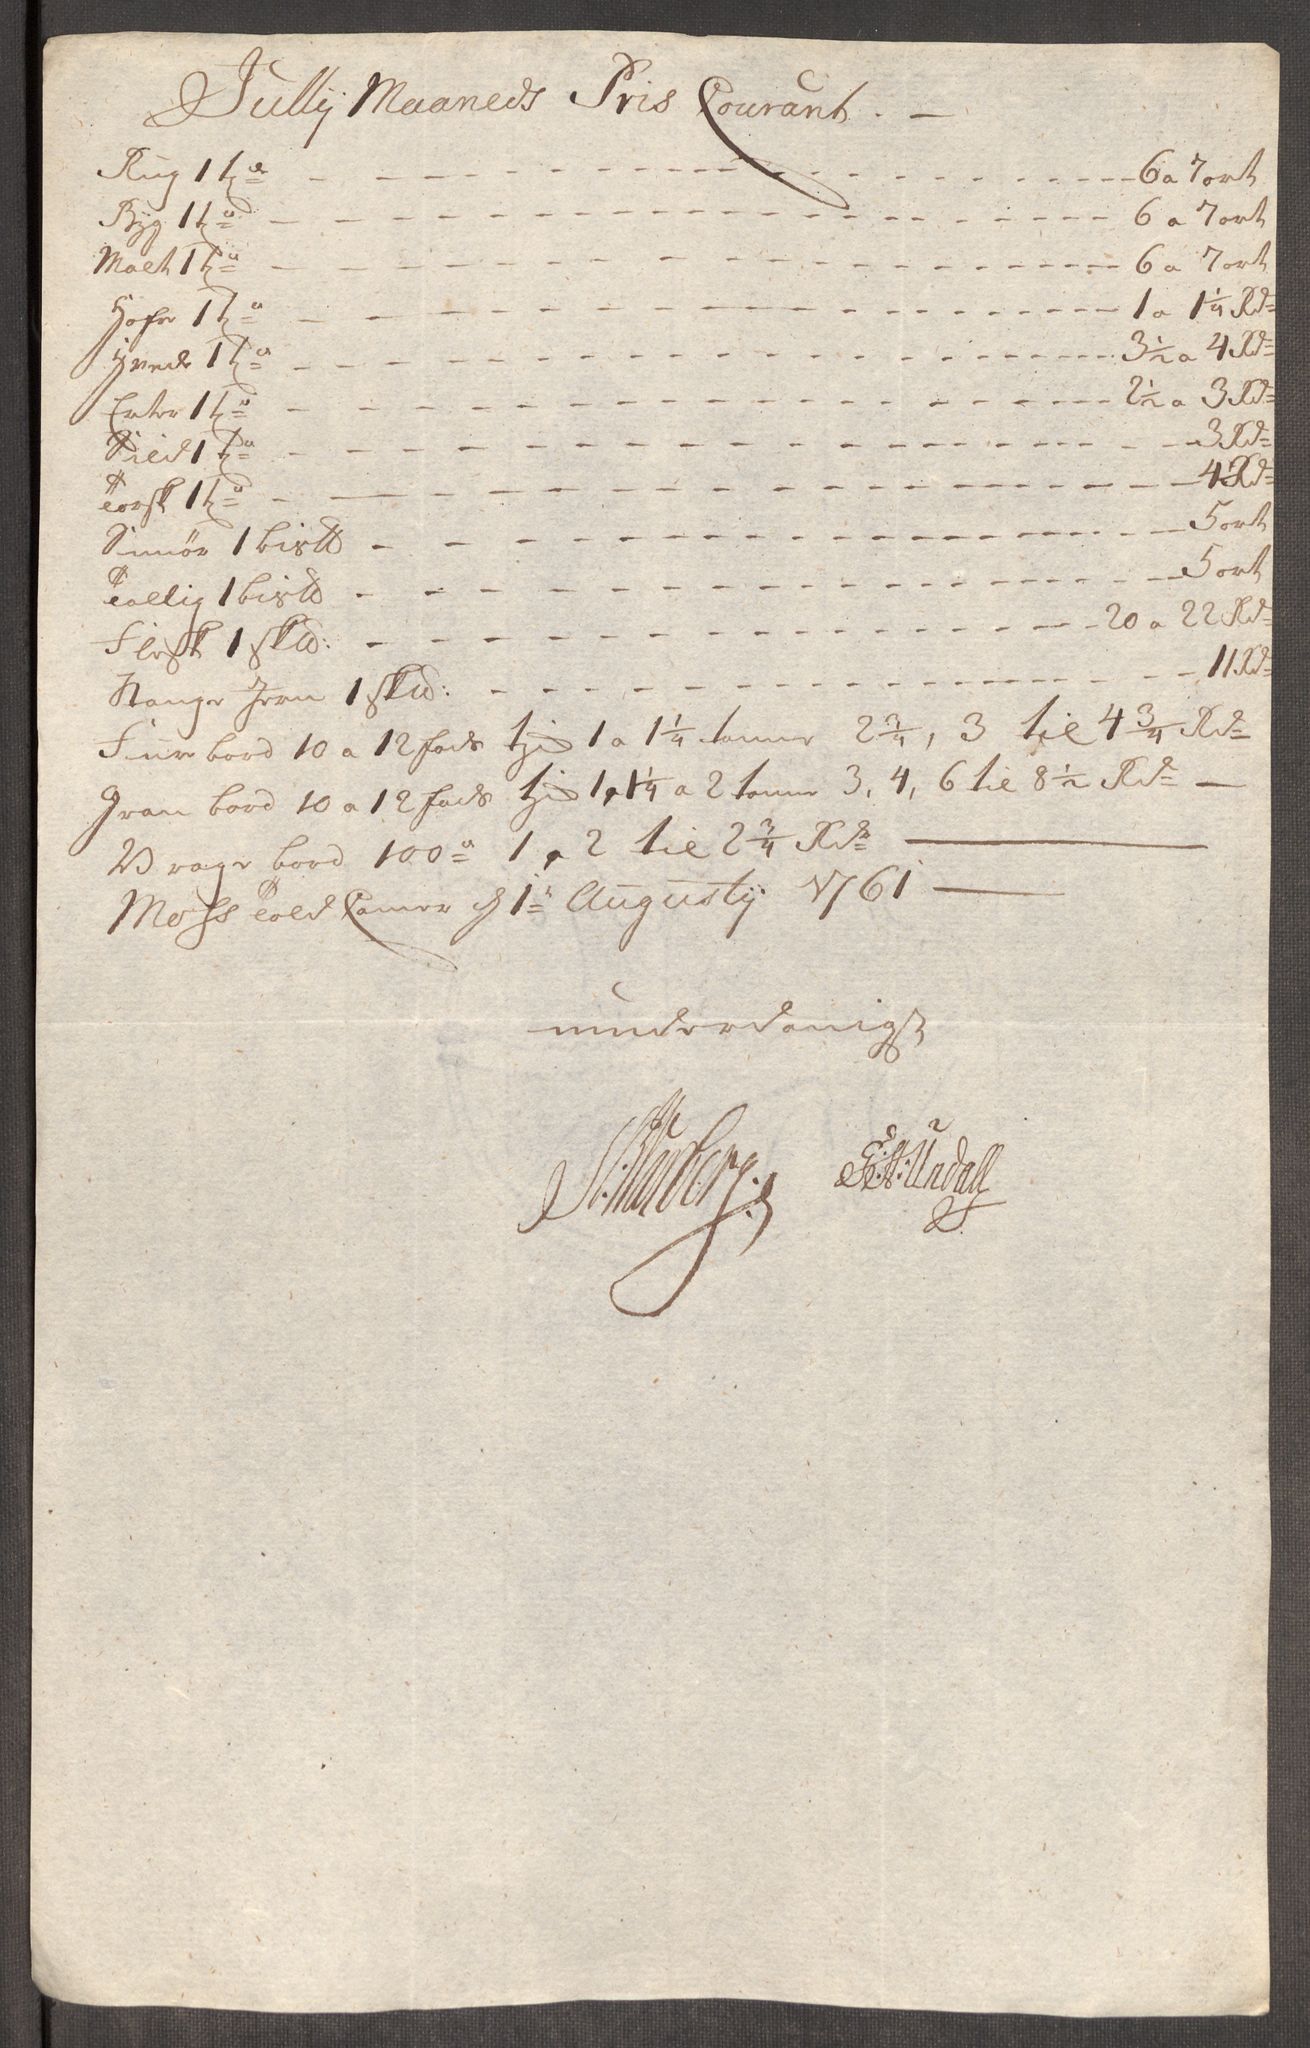 Jullÿ Maaneds Pris Courant. —
Rug 1 tde - - - - - 6 a 7 ort
Byg 1 tde - - - - - 6 a 7 ort
Malt 1 tde - - - - - 6 a 7 ort
Hafre 1 tde - - - - - 1 a 1¼ Rd
Hvede 1 tde - - - - - 3½ a 4 Rd
Erter 1 tde - - - - - 2½ a 3 Rd
Sild 1 tde - - - - - 3 Rd
Torsk 1 tde - - - - - 4 Rd
Smør 1 bis℔ - - - - - 5 ort
Tallig 1 bis℔ - - - - - 5 ort
Flesk 1 sk℔: - - - - - 20 a 22 Rd
Stange Jern 1 sk℔: - - - - - 11 Rd
Furebord 10 a 12 fods 1 a 1¼ tomme 2¾, 3 til 4¾ Rd
Gran bord 10 a 12 fods 1, 1¼ a 2 tomme 3, 4, 6 til 8½ Rd —
Vrage bord 100 1 a 2 til 2¾ Rd —
Moss Told Camer d 1 Augustÿ 1761 —
underdanigst